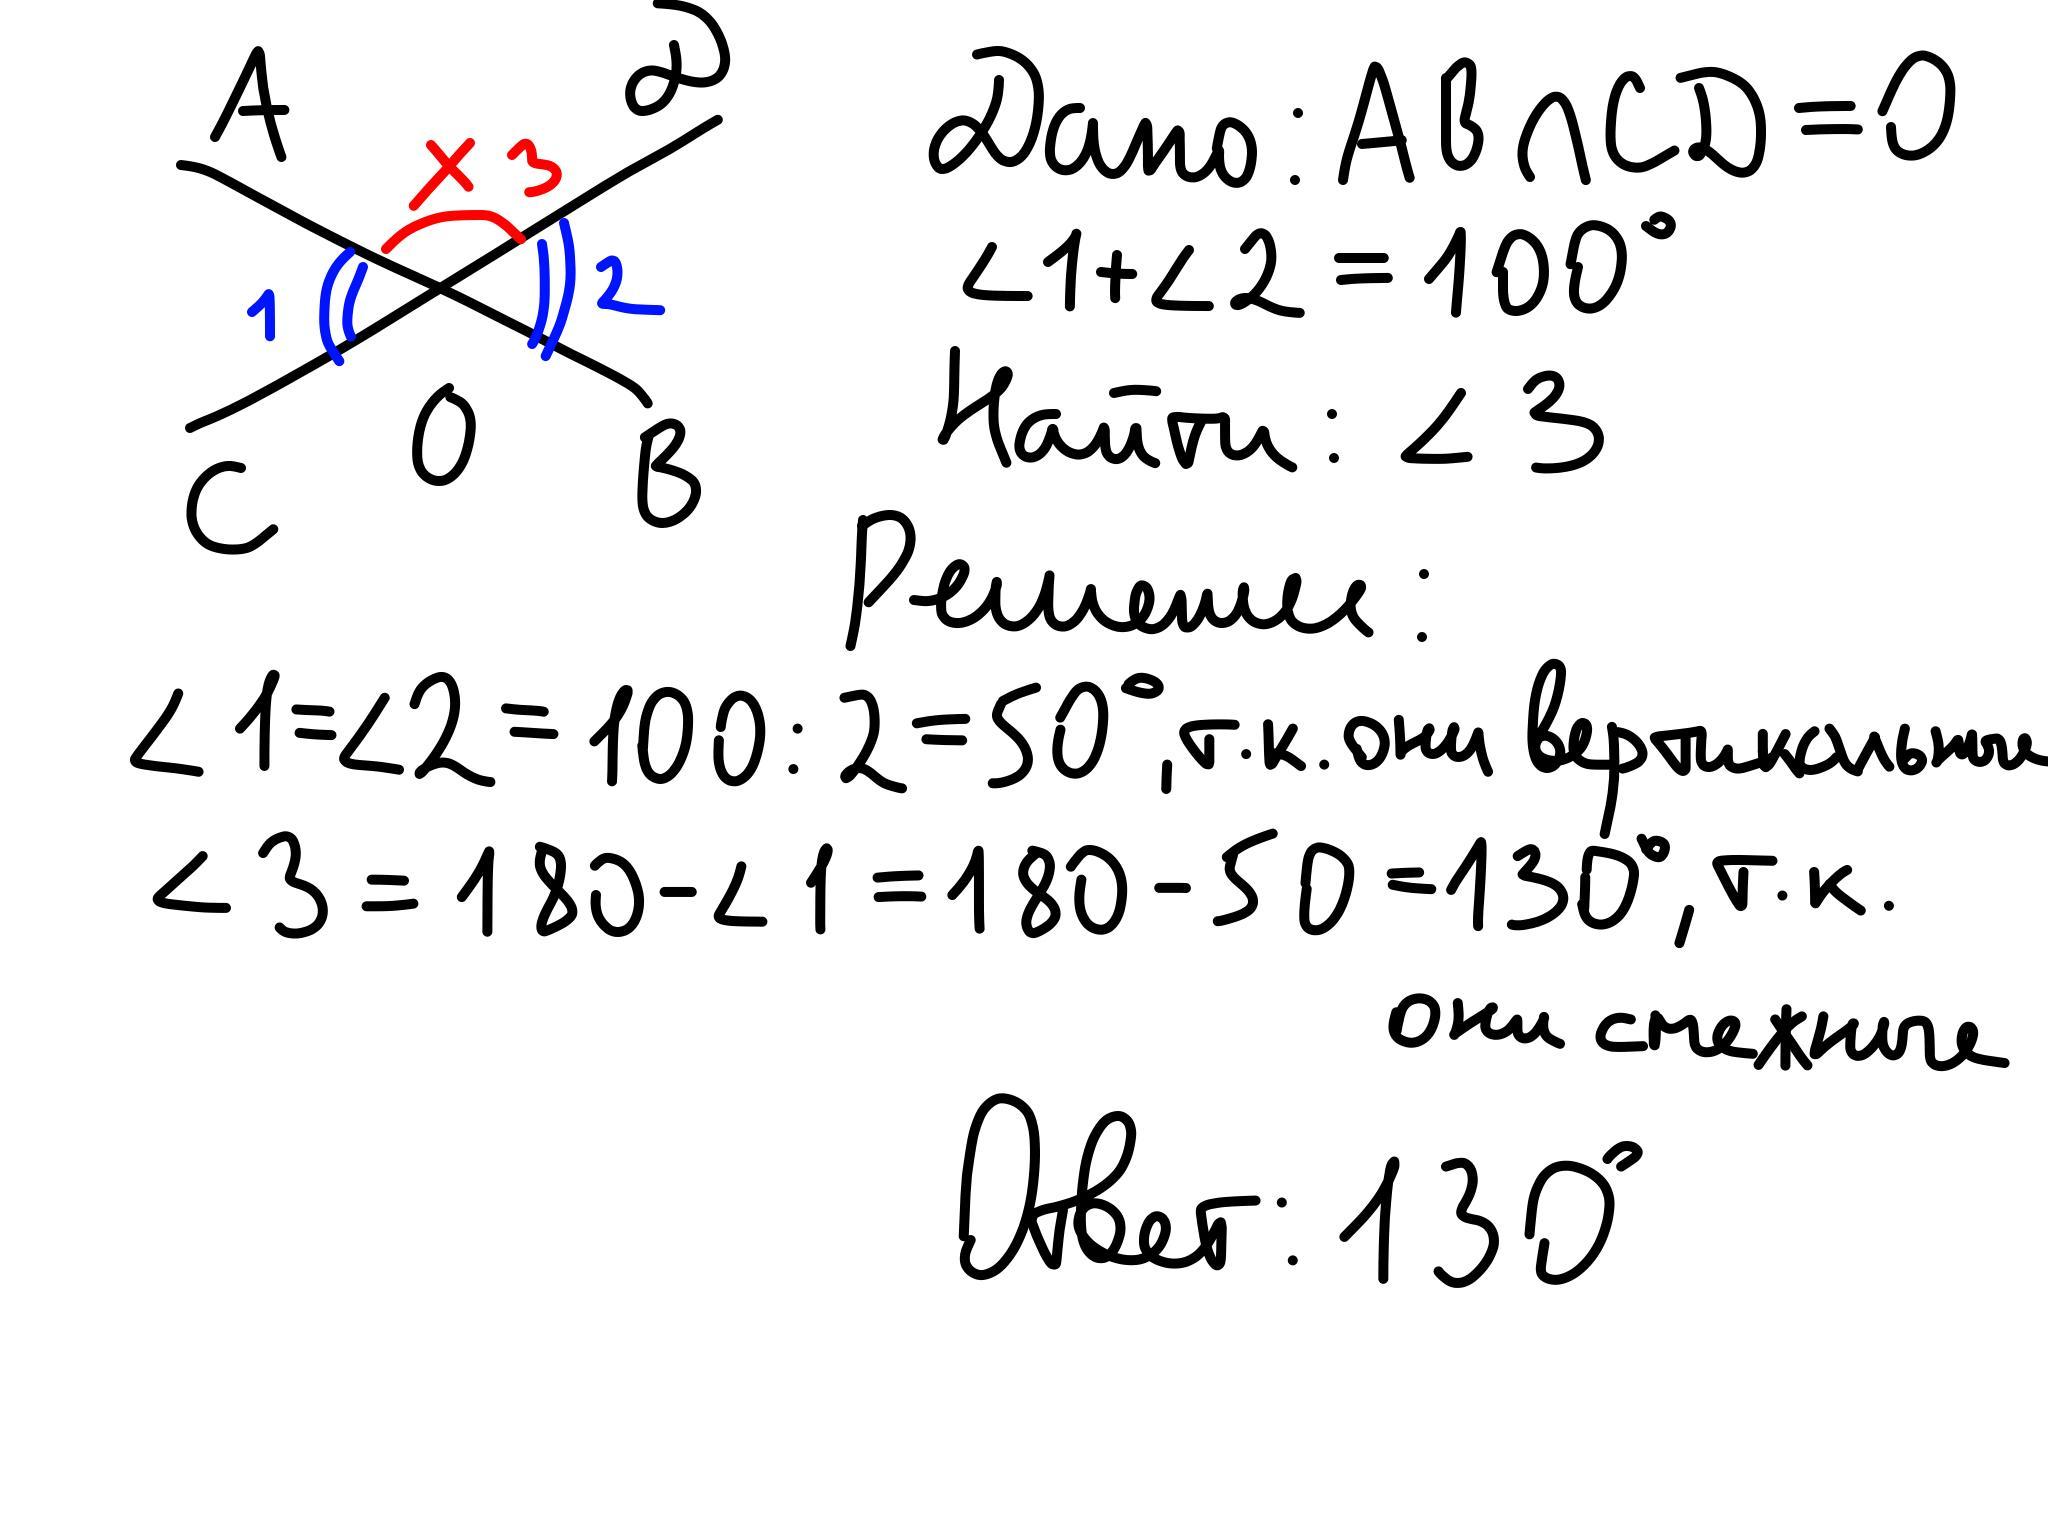 A D
x 3
1 2
C O B
Дано: AB∩CD=O
∠1+∠2=100°
Найти: ∠3
Решение:
∠1=∠2=100:2=50°, т.к. они вертикальные
∠3=180-∠1=180-50=130°, т.к.
они смежные
Ответ: 130°